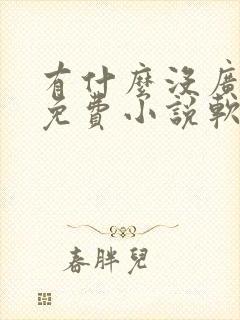 有什麼沒廣
免費小說軟
春胖兒